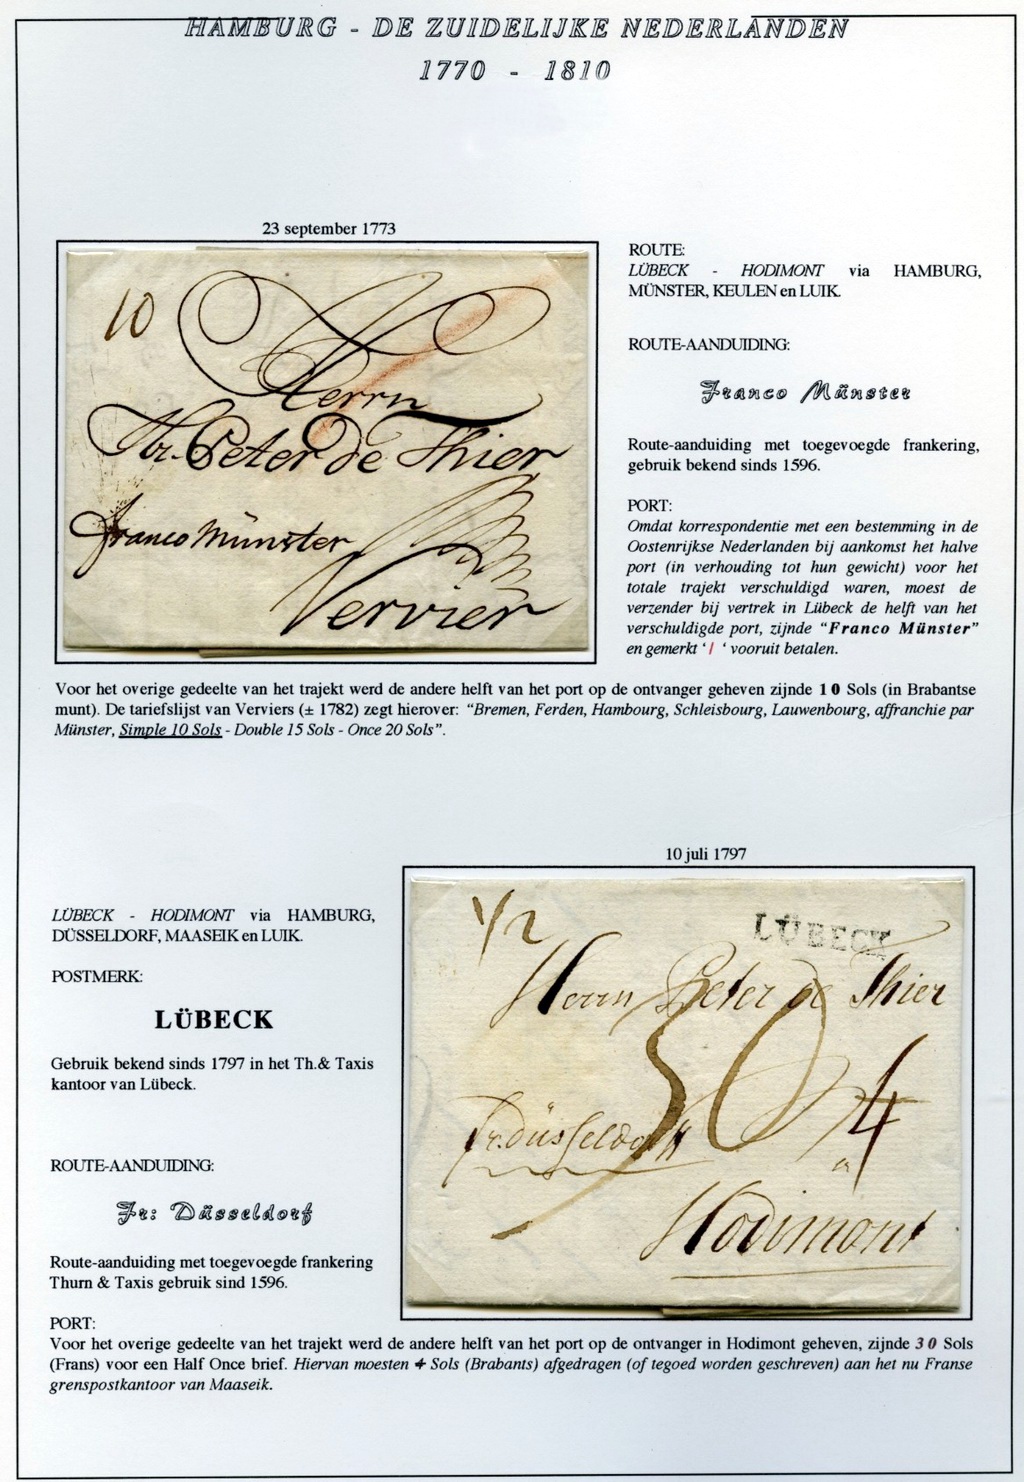 HAMBURG - DE ZUIDELIJKE NEDERLANDEN
1770 - 1810
23 september 1773
10
Herrn
Hr. Peter de Thier
franco Münster
Vervier
ROUTE:
LÜBECK - HODIMONT via HAMBURG,
MÜNSTER, KEULEN en LUIK.
ROUTE-AANDUIDING:
Franco Münster
Route-aanduiding met toegevoegde frankering,
gebruik bekend sinds 1596.
PORT:
Omdat korrespondentie met een bestemming in de
Oostenrijkse Nederlanden bij aankomst het halve
port (in verhouding tot hun gewicht) voor het
totale trajekt verschuldigd waren, moest de
verzender bij vertrek in Lübeck de helft van het
verschuldigde port, zijnde “Franco Münster”
en gemerkt ‘ / ‘ vooruit betalen.
Voor het overige gedeelte van het trajekt werd de andere helft van het port op de ontvanger geheven zijnde 10 Sols (in Brabantse
munt). De tariefslijst van Verviers (± 1782) zegt hierover: “Bremen, Ferden, Hambourg, Schleisbourg, Lauwenbourg, affranchie par
Münster, Simple 10 Sols - Double 15 Sols - Once 20 Sols”.
10 juli 1797
LÜBECK - HODIMONT via HAMBURG,
DÜSSELDORF, MAASEIK en LUIK.
POSTMERK:
LÜBECK
Gebruik bekend sinds 1797 in het Th.& Taxis
kantoor van Lübeck.
ROUTE-AANDUIDING:
Fr: Düsseldorf
Route-aanduiding met toegevoegde frankering
Thurn & Taxis gebruik sind 1596.
1/2
LÜBECK
Herrn Peter de Thier
30
4
fr. düsseldorff
a
Hodimont
PORT:
Voor het overige gedeelte van het trajekt werd de andere helft van het port op de ontvanger in Hodimont geheven, zijnde 30 Sols
(Frans) voor een Half Once brief. Hiervan moesten 4 Sols (Brabants) afgedragen (of tegoed worden geschreven) aan het nu Franse
grenspostkantoor van Maaseik.